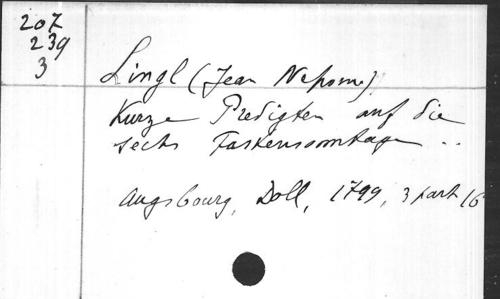 207
239
3
Lingl (Jean Nepom.)
Kurze Predigten auf die
sechs Fastensonntage ..
Augsbourg, Doll, 1799, 3 part 16